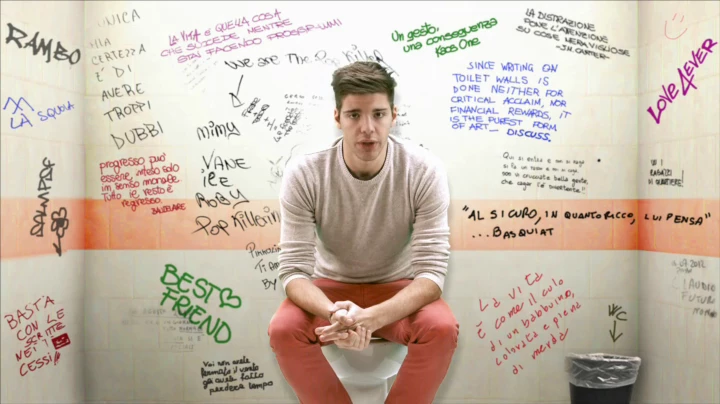 RAMBO
LA SQUOLA
BASTA
CON LE
SCRITTE
NEI
CESSI
UNICA
MIA
CERTEZZA
È DI
AVERE
TROPPI
DUBBI
progresso può
essere, intelo solo
in senso morale
Tutto il resto è
regresso.
BAUDELAIRE
LA VITA È QUELLA COSA
CHE SUCCEDE MENTRE
STAI FACENDO
We are The
MIMY
VANE
ICE
ROBY
POP
BEST
FRIEND
Voi non avete
fermato il vento
gli avete fatto
perdere tempo
Un gesto,
una conseguenza
Kaos One
LA DISTRAZIONE
PONE L'ATTENZIONE
SU COSE MERAVIGLIOSE
SINCE WRITING ON
TOILET WALLS IS
DONE NEITHER FOR
CRITICAL ACCLAIM, NOR
FINANCIAL REWARDS, IT
IS THE PUREST FORM
OF ART— DISCUSS.
Qui si entra e non si
"AL SICURO, IN QUANTO RICCO, LUI PENSA"
...BASQUIAT
La vita
è come il culo
di un babbuino,
colorata e piena
di merda
WC
LOVE 4EVER